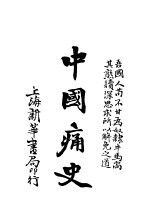 吾國人而不甘為奴隸牛馬焉
其熟讀深思求所以解免之道
中國痛史
上海新華書局印行